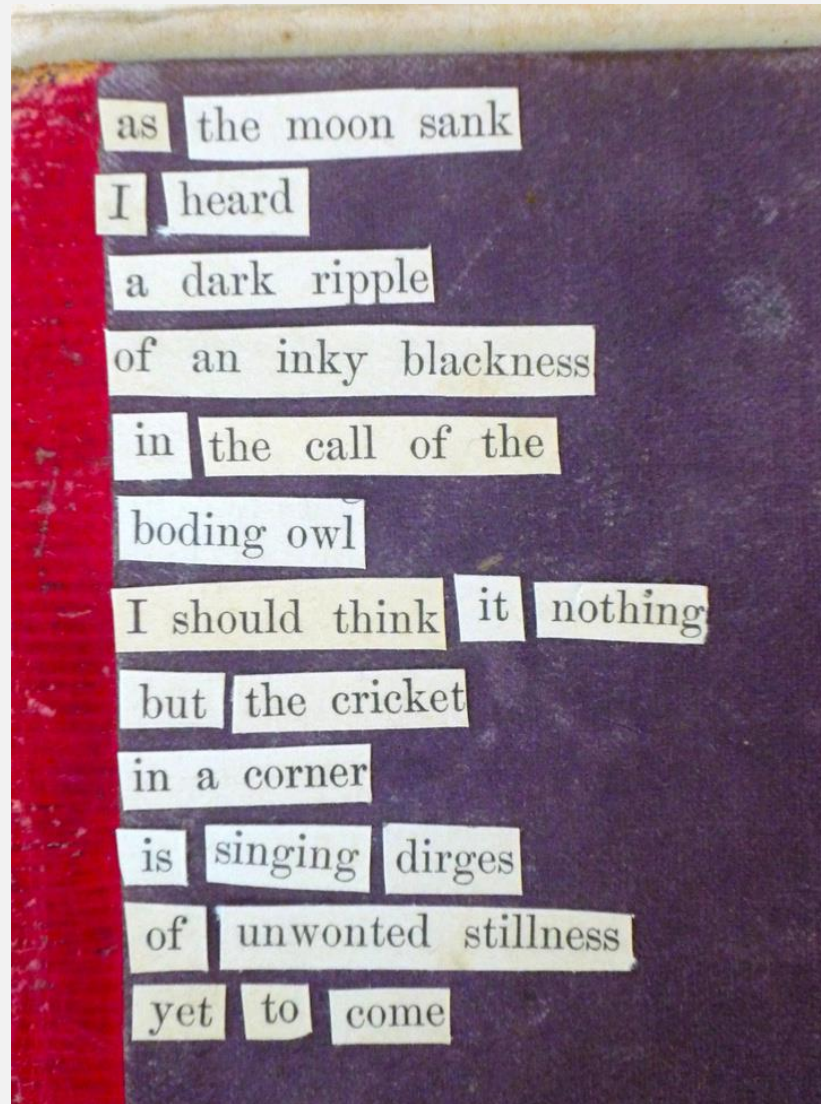 as the moon sank
I heard
a dark ripple
of an inky blackness
in the call of the
boding owl
I should think it nothing
but the cricket
in a corner
is singing dirges
of unwonted stillness
yet to come